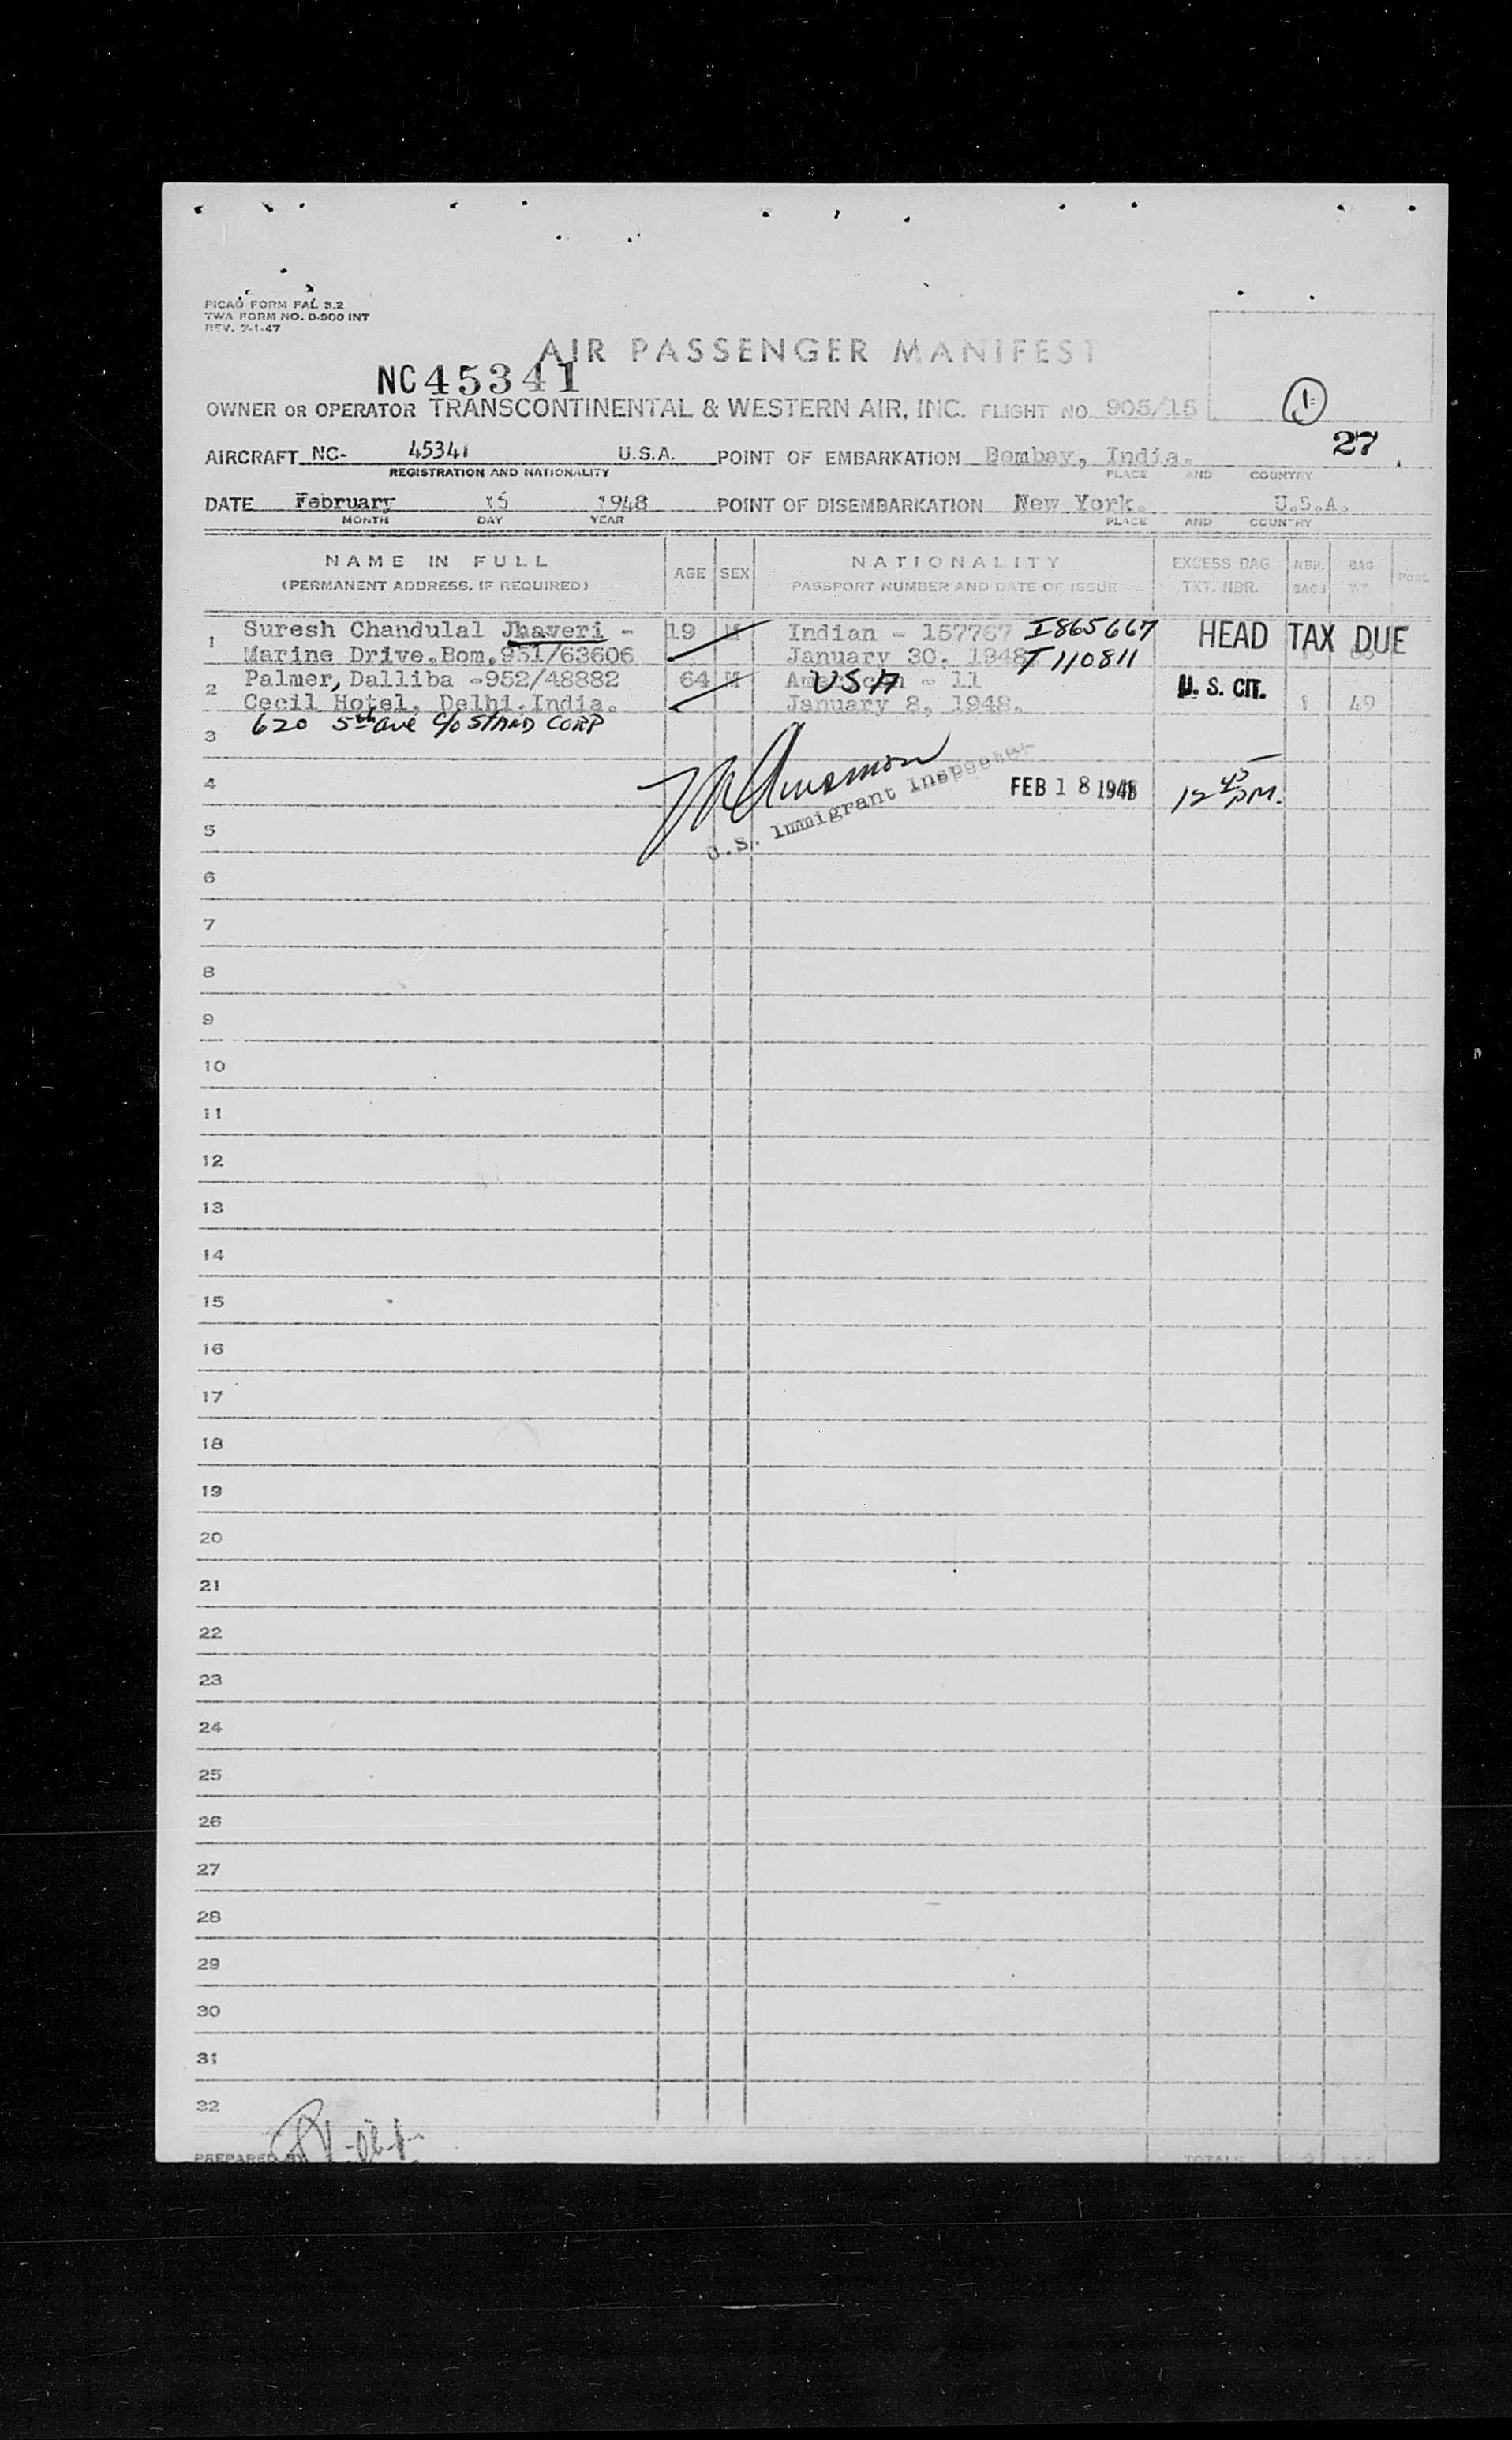 PICAO FORM FAL 3.2
TWA FORM NO. O-900 INT
REV. 7-1-47
AIR PASSENGER MANIFEST
NC45341
OWNER OR OPERATOR TRANSCONTINENTAL & WESTERN AIR, INC. FLIGHT NO. 905/15
1
27
AIRCRAFT NC- 45341 U.S.A. POINT OF EMBARKATION Bombay, India.
REGISTRATION AND NATIONALITY PLACE AND COUNTRY
DATE February 15 1948 POINT OF DISEMBARKATION New York. U.S.A.
MONTH DAY YEAR PLACE AND COUNTRY
NAME IN FULL AGE SEX NATIONALITY EXCESS BAG NBR. BAG
(PERMANENT ADDRESS. IF REQUIRED) PASSPORT NUMBER AND DATE OF ISSUE TKT. NBR. BAGS WT.
1 Suresh Chandulal Jhaveri - 19 M Indian - 157767 I865667 HEAD TAX DUE
Marine Drive.Bom.951/63606 January 30, 1948. T110811
2 Palmer, Dalliba -952/48882 64 M American - 11 USA U. S. CIT.
Cecil Hotel, Delhi.India. January 8, 1948. 1 49
620 5th ave c/o STAND CORP
3
4 U.S. Immigrant Inspector FEB 18 1948 12 45 PM.
5
6
7
8
9
10
11
12
13
14
15
16
17
18
19
20
21
22
23
24
25
26
27
28
29
30
31
32
PREPARED BY TOTALS 2